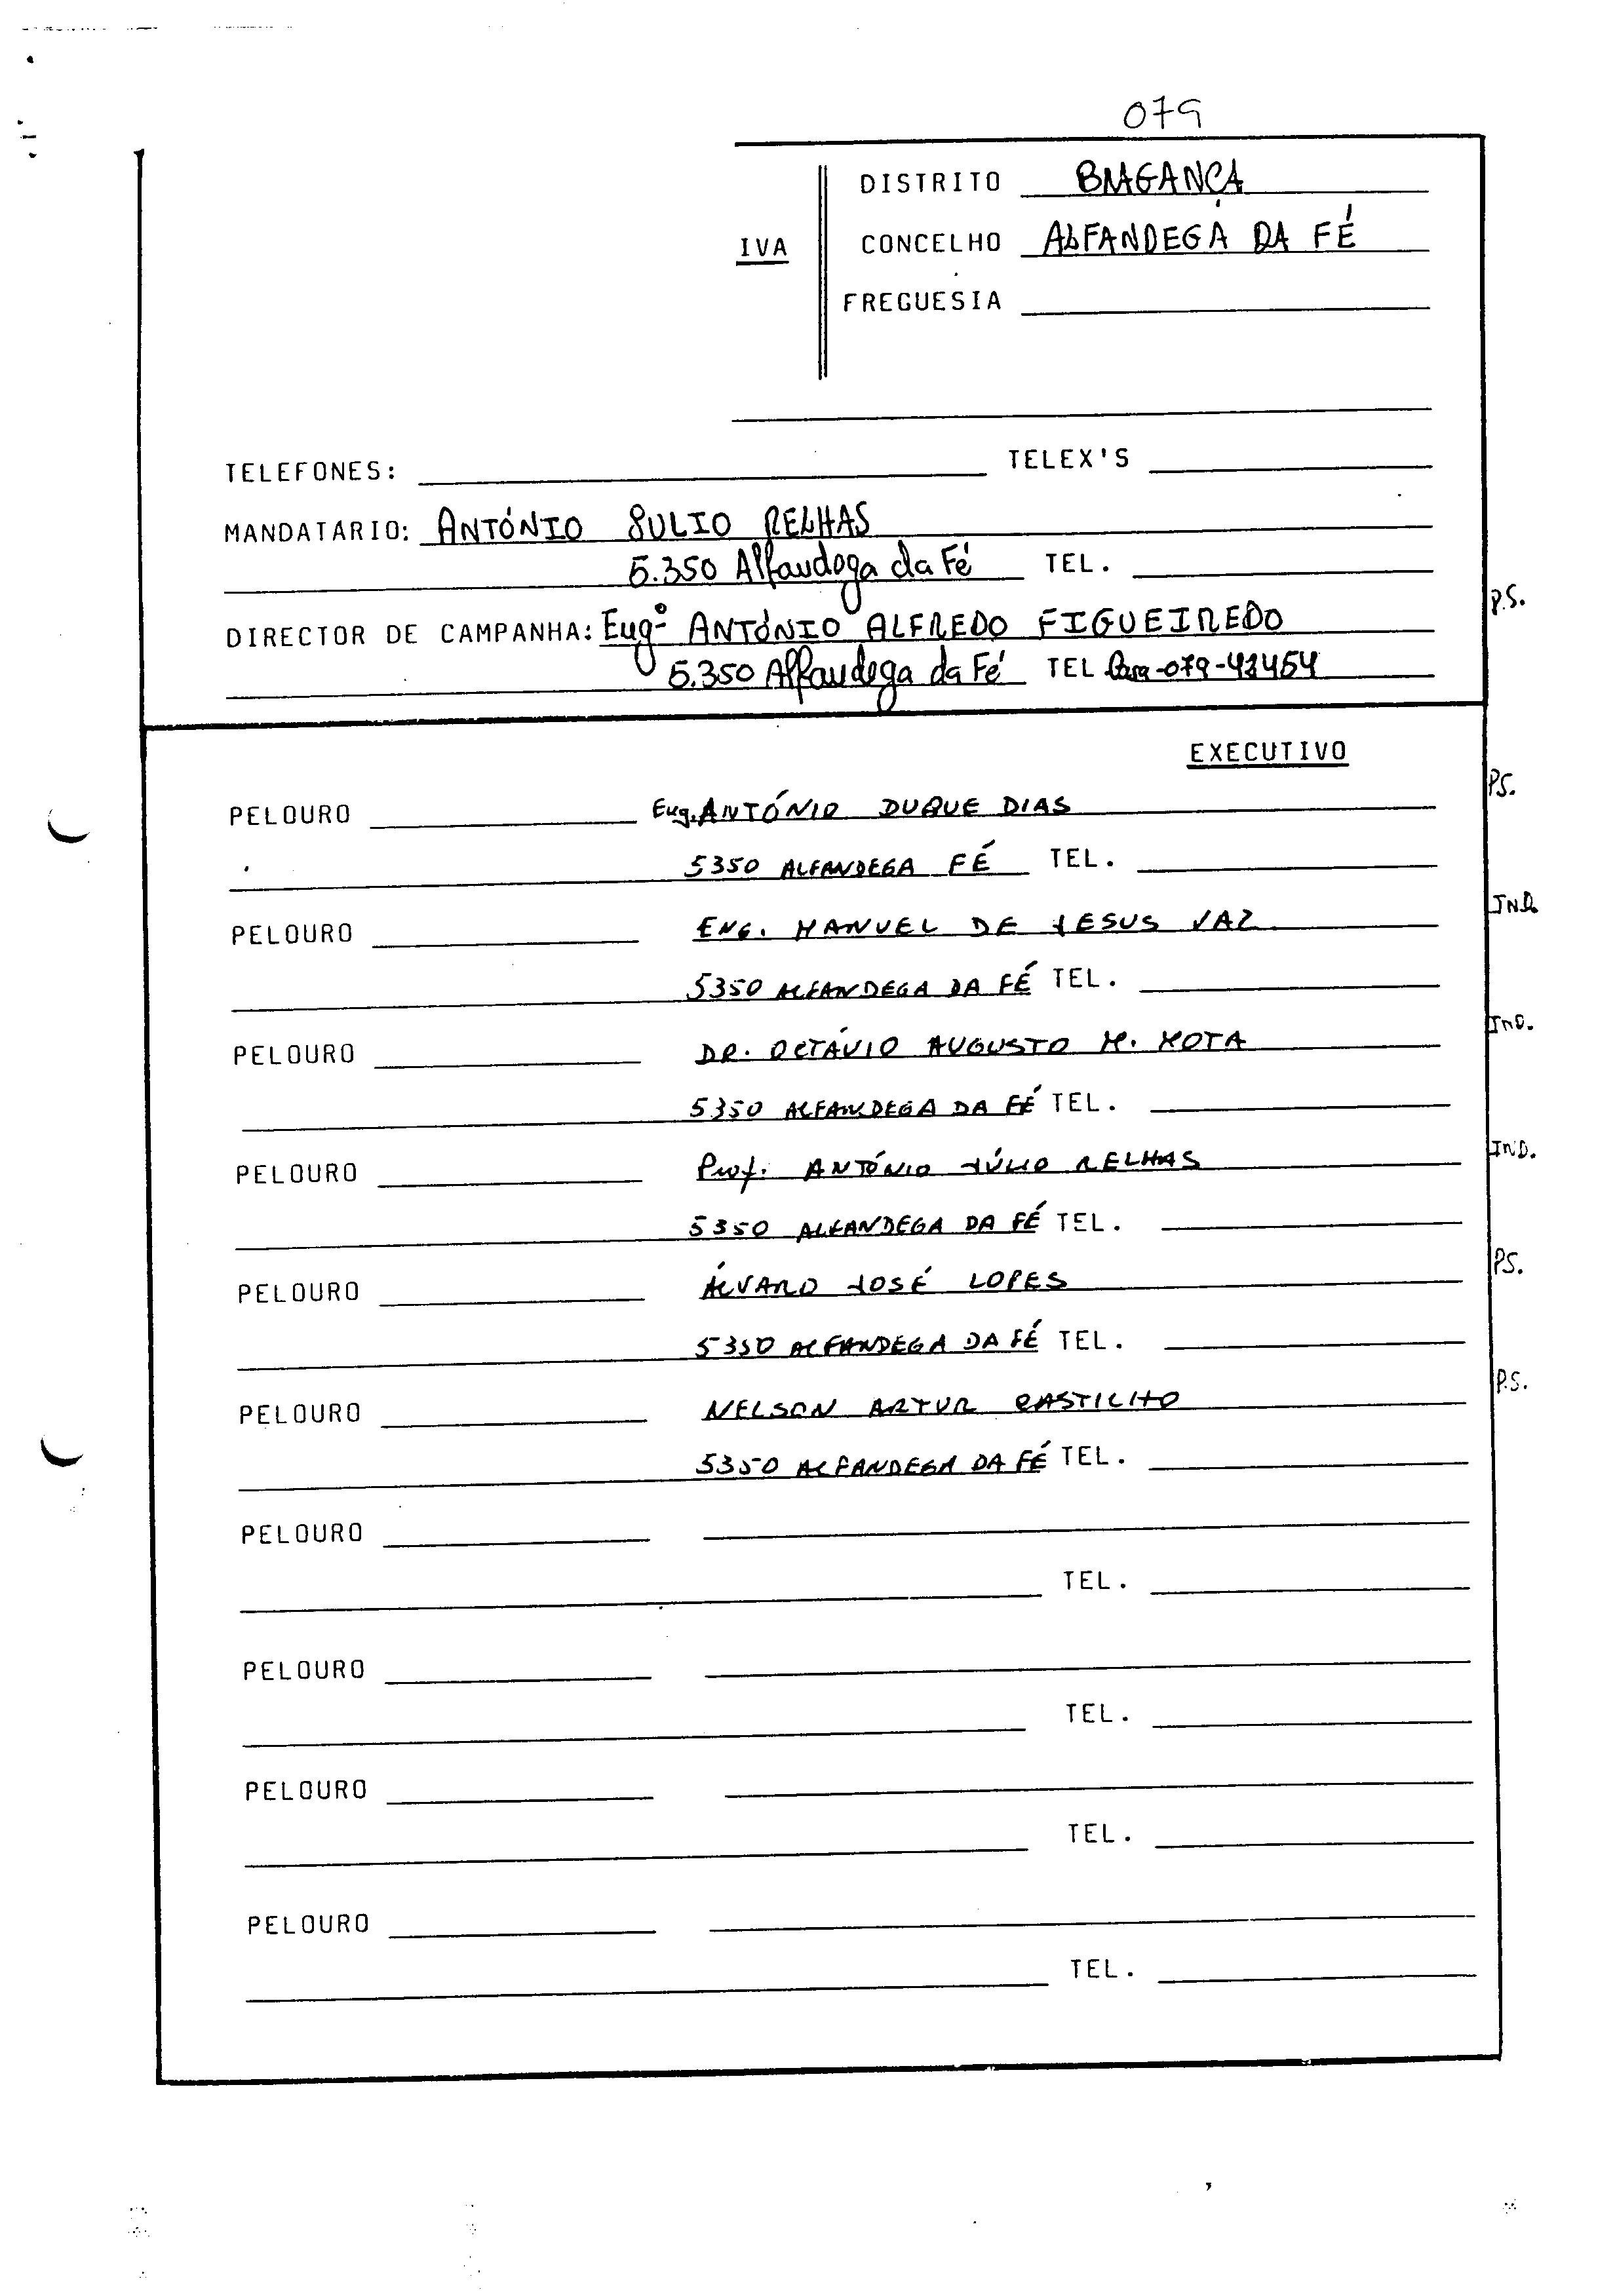 079
DISTRITO BRAGANÇA
IVA
CONCELHO ALFANDEGA DA FÉ
FREGUESIA
TELEFONES: TELEX'S
MANDATARIO: ANTÓNIO JULIO RELHAS
5.350 Alfandega da Fé TEL.
P.S.
DIRECTOR DE CAMPANHA: Engº ANTÓNIO ALFREDO FIGUEIREDO
5.350 Alfandega da Fé TEL Casa-079-42454
EXECUTIVO
PS.
PELOURO Eng. ANTÓNIO DUQUE DIAS
5350 ALFANDEGA FÉ TEL.
IND.
PELOURO ENG. MANUEL DE JESUS VAZ
5350 ALFANDEGA DA FÉ TEL.
IND.
PELOURO DR. OCTÁVIO AUGUSTO M. MOTA
5350 ALFANDEGA DA FÉ TEL.
IND.
PELOURO Prof. ANTÓNIO JÚLIO RELHAS
5350 ALFANDEGA DA FÉ TEL.
PS.
PELOURO ÁLVARO JOSÉ LOPES
5350 ALFANDEGA DA FÉ TEL.
P.S.
PELOURO NELSON ARTUR CASTILHO
5350 ALFANDEGA DA FÉ TEL.
PELOURO
TEL.
PELOURO
TEL.
PELOURO
TEL.
PELOURO
TEL.